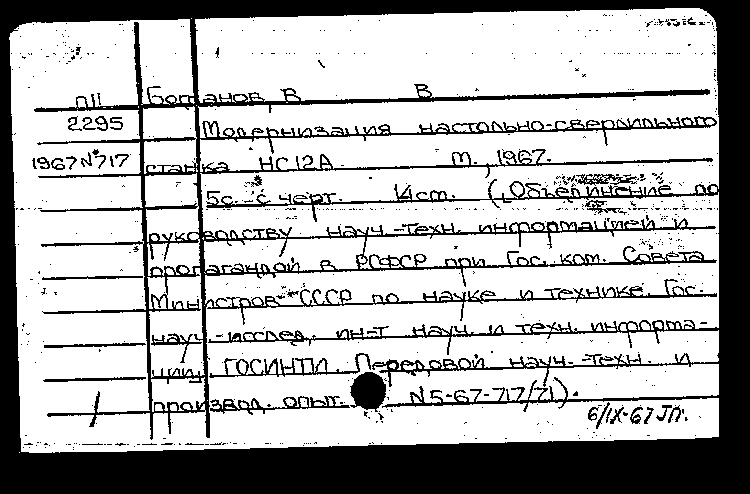 П11 Богданов, В В
2295 Модернизация настольно-сверлильного
1967 №717 станка НС12А М., 1967.
5с. с черт. 14см. (Объединение по
руководству науч.-техн. информацией и
пропагандой в РСФСР при Гос. ком. Совета
Министров СССР по науке и технике. Гос.
науч.-исслед. ин-т науч. и техн. информа-
ции. ГОСИНТИ. Передовой науч.-техн. и
произвд. опыт. N5-67-717/71).
6/IX-67